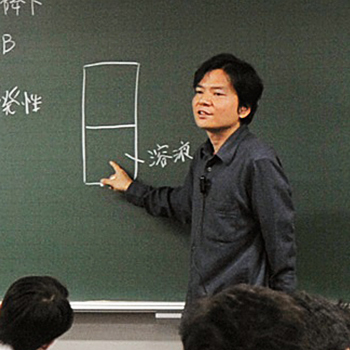 降下
B
発性
溶液